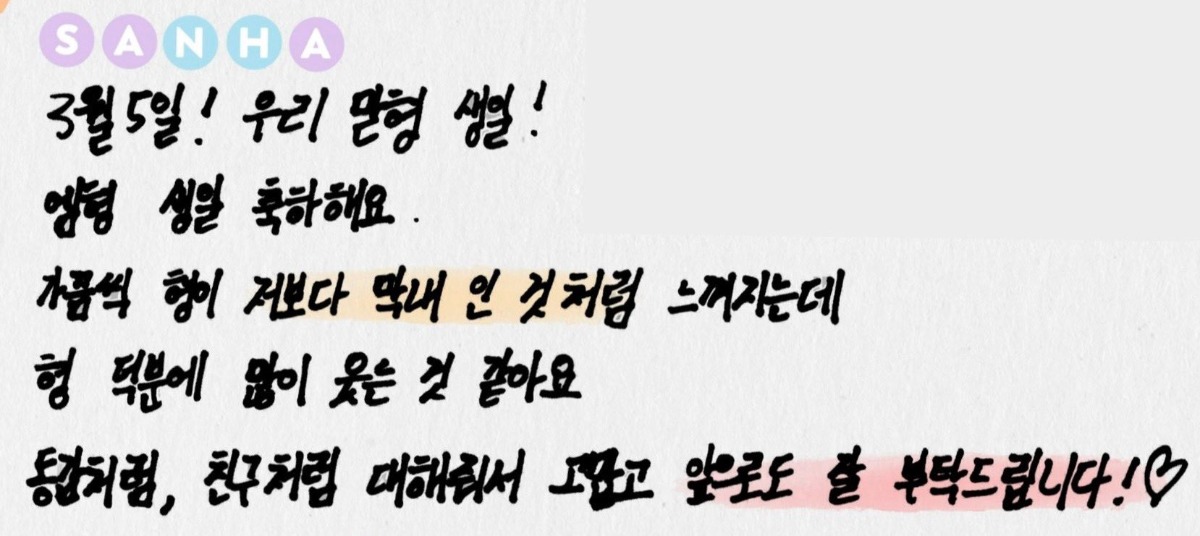 SANHA
3월 5일! 우리 맏형 생일!
엠형 생일 축하해요.
가끔씩 형이 저보다 막내 인 것처럼 느껴지는데
형 덕분에 많이 웃는 것 같아요
동갑처럼, 친구처럼 대해줘서 고맙고 앞으로도 잘 부탁드립니다!♡